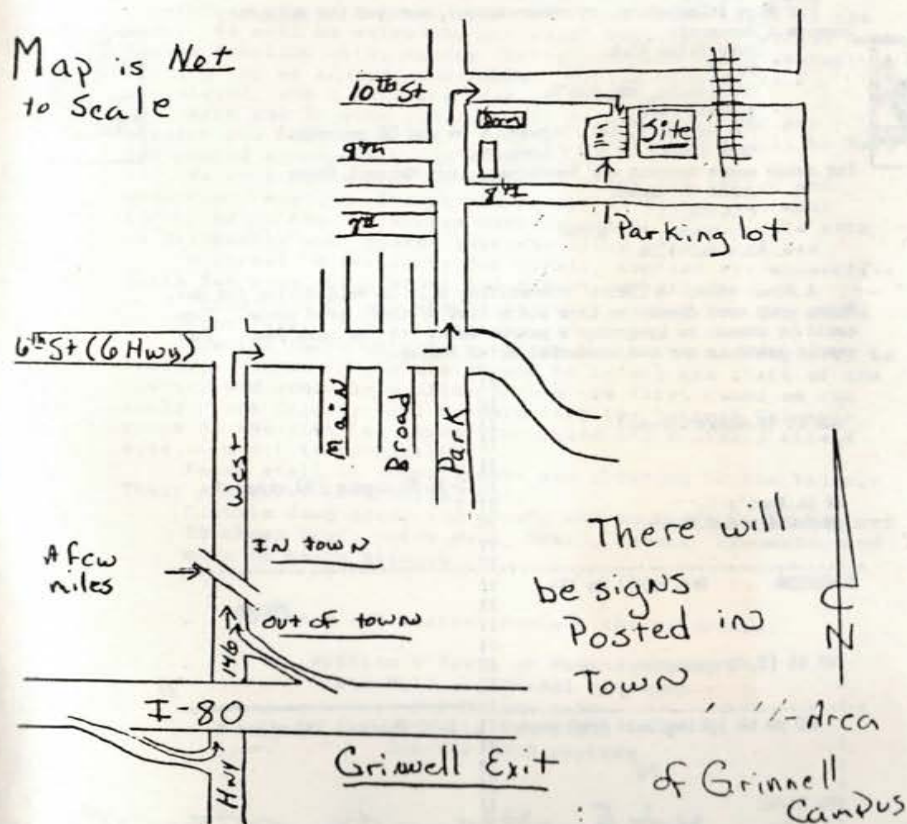 Map is Not
to Scale
10th St
9th
8th
7th
Dorm
Site
Parking lot
6th St (6 Hwy)
Main
Broad
Park
West
A few
miles
In town
out of town
146
I-80
Hwy
Grinwell Exit
There will
be signs
Posted in
Town
N
Area
of Grinnell
Campus